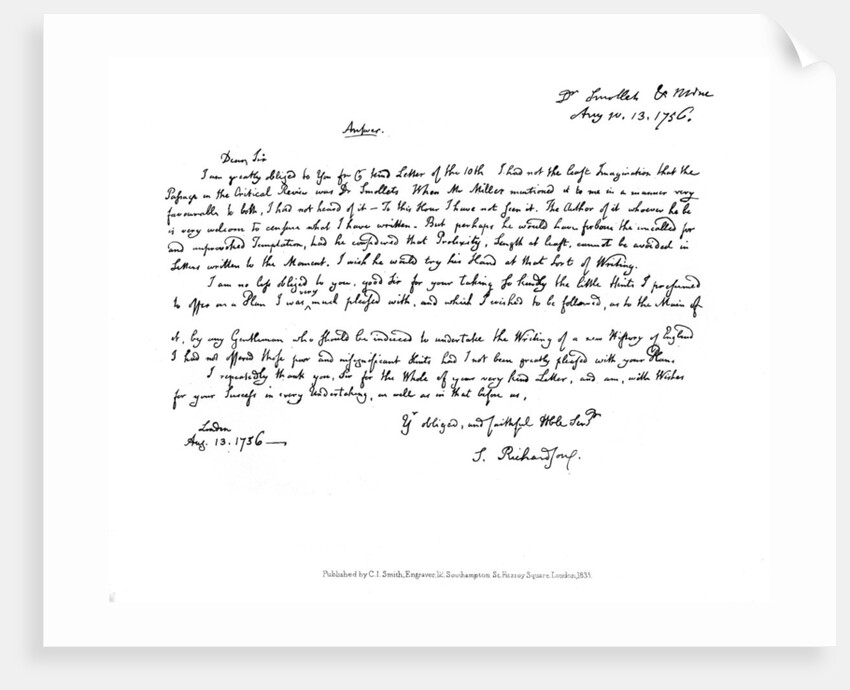 Dr Smollet & Mine
Aug st. 13. 1756.
Answer.
Dear Sir
I am greatly obliged to You for kind Letter of the 10th I had not the least Imagination that the
Passage in the Critical Review was Dr Smollets When Mr Millar mentioned it to me in a manner very
favourable to both, I had not heard of it – To this Hour I have not seen it. The Author of it whoever he be
is very welcome to censure what I have written. But perhaps he would have forborne the uncalled for
and unprovoked Temptation, had he considered that Prolixity, Length at least, cannot be avoided in
Letters written to the Moment. I wish he would try his Hand at that Sort of Writing.
I am no less obliged to you, good Sir for your taking so kindly the little Hints I presumed
to offer on a Plan I was very much pleased with, and which I wished to be followed, as to the Main of
it, by any Gentleman who should be induced to undertake the Writing of a new History of England
I had not offered those poor and insignificant Hints had I not been greatly pleased with your Plan.
I repeatedly thank you, Sir for the Whole of your very kind Letter, and am, with Wishes
for your Success in every Undertaking, as well as in that before us,
Yr obliged, and faithful Hble Servt
London
Aug. 13. 1756—
S. Richardson.
Published by C.I. Smith, Engraver, Southampton St. Fitzroy Square, London, 1835.